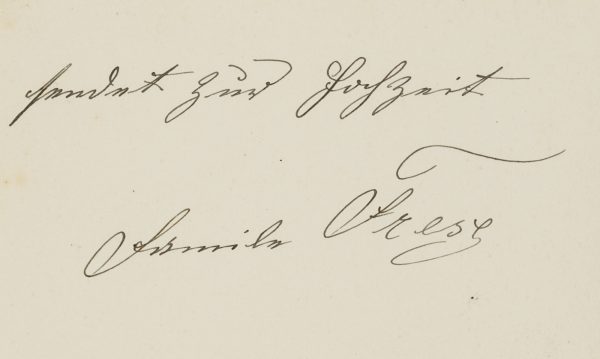 sendet zur Hochzeit
Familie Frese